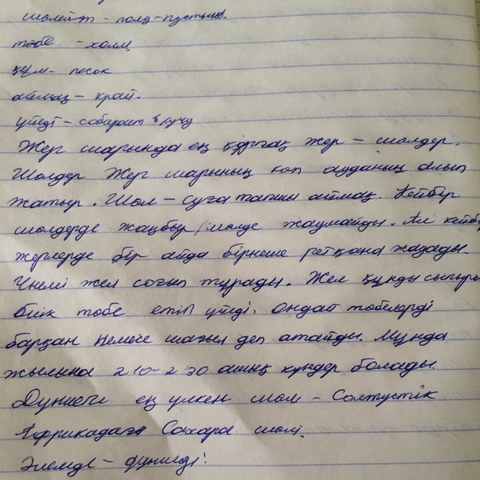 шөлейт - полу-пустыня.
төбе - холм
құм - песок
аймақ - край.
үйеді - собирает в кучу
Жер шарында ең құрғақ жер - шөлдер.
Шөлдер Жер шарының көп ауданын алып
жатыр. Шөл - суға тапшы аймақ. Кейбір
шөлдерде жаңбыр мүлде жаумайды. Ал кейбір
жерлерде бір айда бірнеше рет қана жауады.
Үнемі жел соғып тұрады. Жел құмды сыпырып
биік төбе етіп үйеді. Ондай төбелерді
барқан немесе шағыл деп атайды. Мұнда
жылына 210-230 ашық күндер болады.
Дүниеде ең үлкен шөл - Солтүстік
Африкадағы Сахара шөлі.
Әлемде - дүниеде.